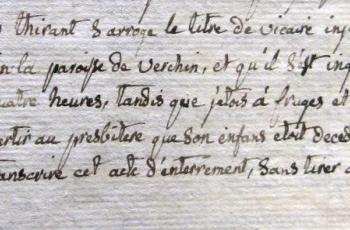 thirant s'arroge le titre de vicaire
la paroisse de verchin, et qu'il s'est
heures, tandis que j'etois á fruges et
au presbitere que son enfans etoit
cet acte d'enterrement, sans tirer